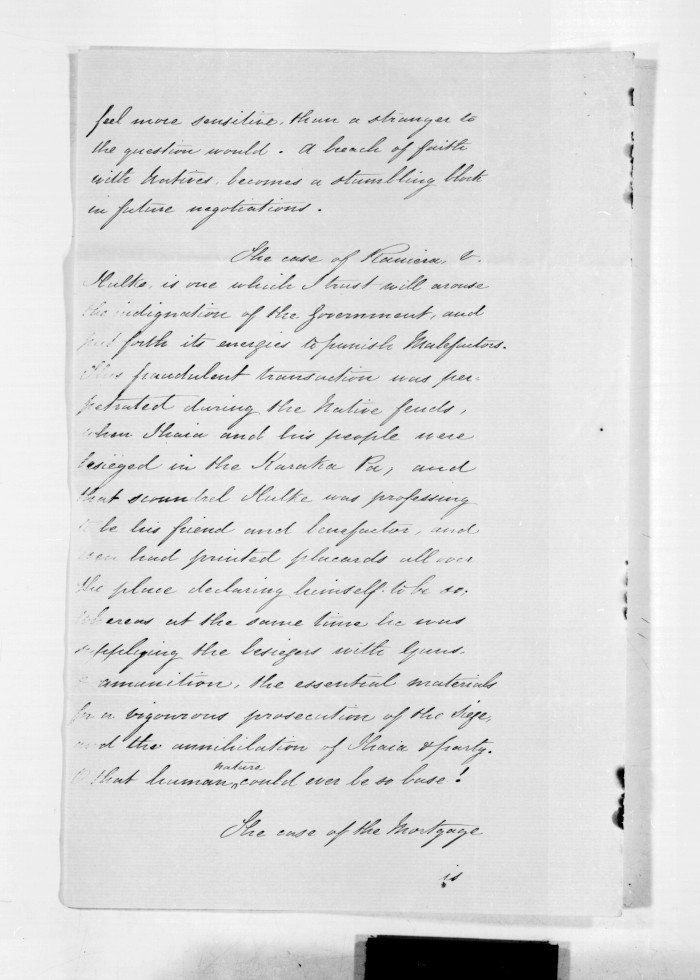 feel more sensitive, than a stranger to
the question would. A breach of faith
with Natives. becomes a stumbling block
in future negotiations.
The case of Raniera, v.
Hulke, is one which I trust will arouse
the indignation of the Government, and
put forth its energies to punish Malefactors.
This fraudulent transaction was per-
petrated during the Native feuds,
when Ihaia and his people were
besieged in the Karaka Pa, and
that scoundrel Hulke was professing
to be his friend and benefactor, and
even had printed placards all over
the place declaring himself to be so;
whereas at the same time he was
supplying the besiegers with Guns.
& amunition, the essential materials
for a vigourous prosecution of the siege,
and the annihilation of Ihaia & party.
O that human nature could ever be so base!
The case of the Mortgage
is